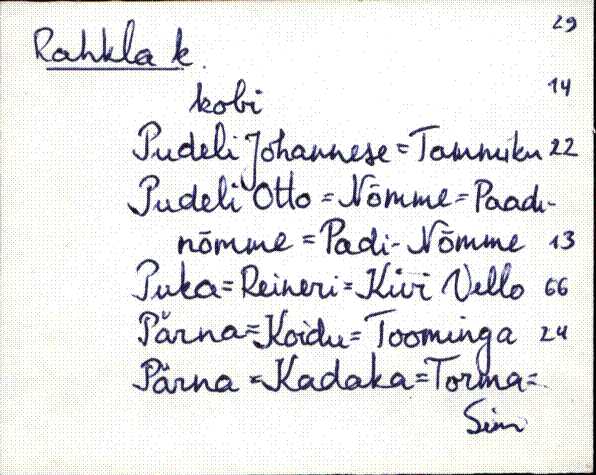 29
Rahkla k.
kobi 14
Pudeli Johannese = Tammiku 22
Pudeli Otto = Nõmme = Paadi-
nõmme = Padi-Nõmme 13
Puka = Reineri = Kivi Vello 66
Pärna = Koidu = Toominga 24
Pärna = Kadaka = Torma =